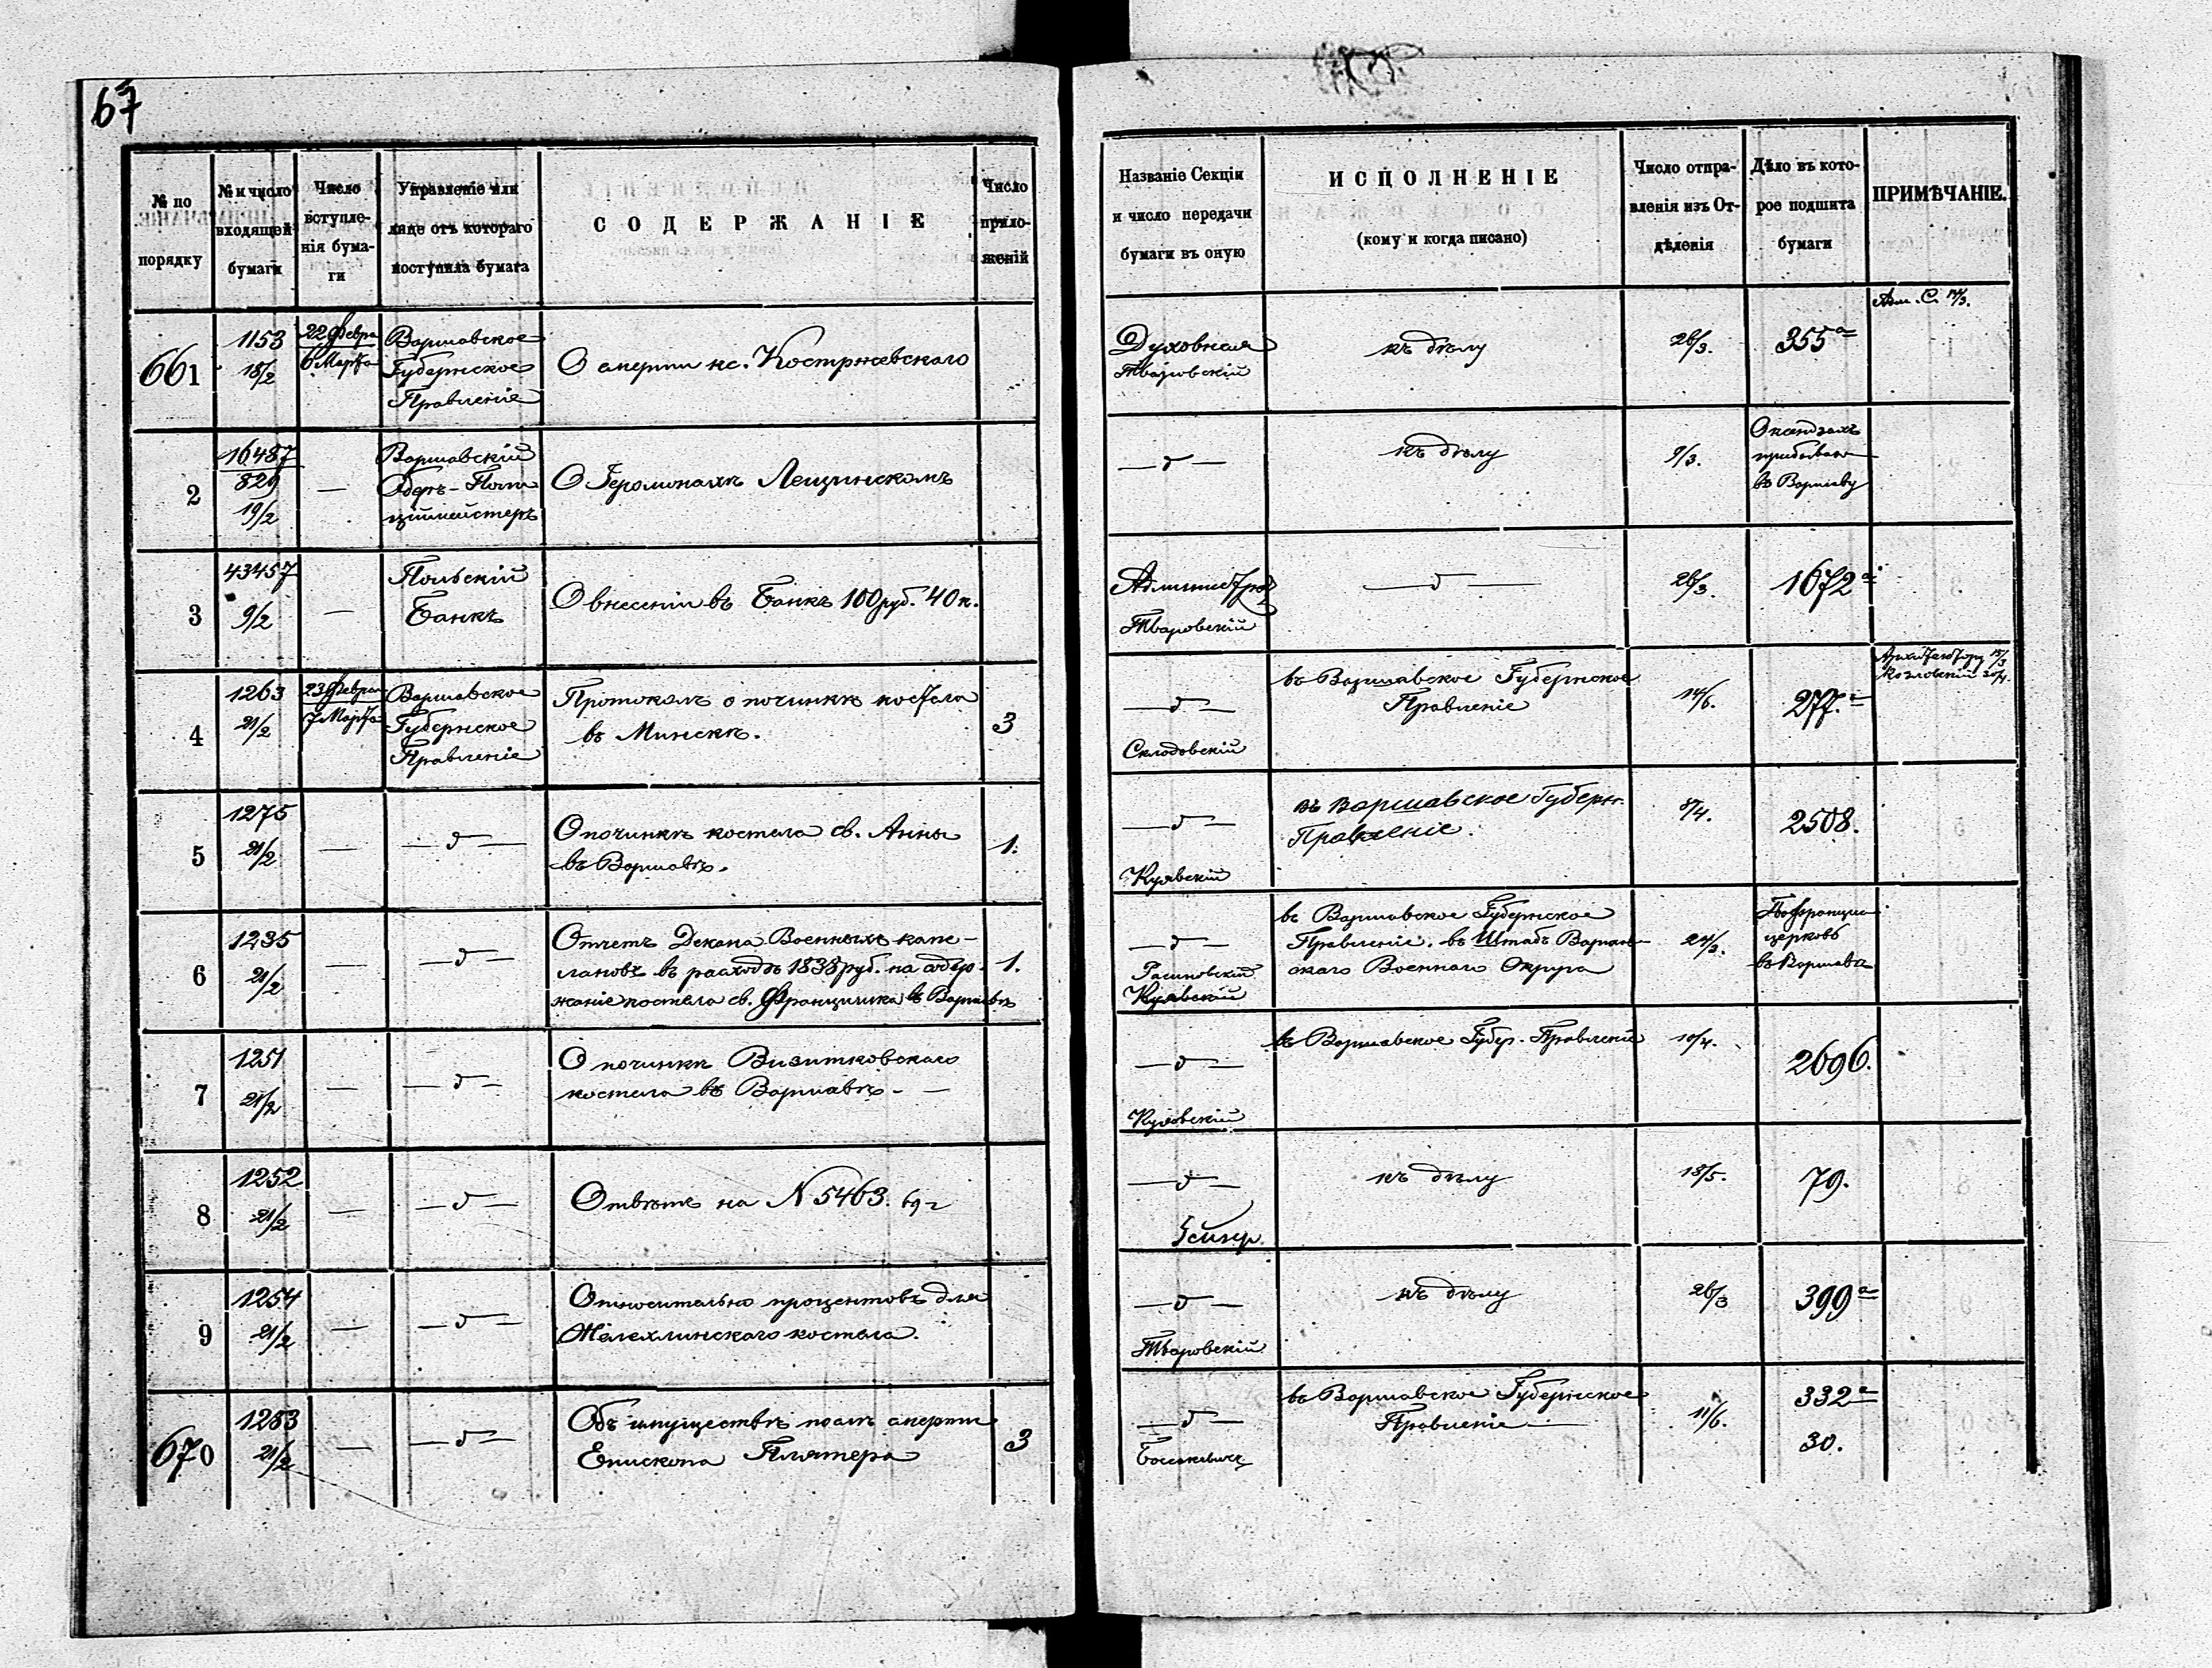 67
№ по порядку
№ и число входящей бумаги
Число вступле-нія бума-ги
Управленіе или лице отъ котораго поступила бумага
СОДЕРЖАНІЕ
Число прило-женій
Названіе Секціи и число передачи бумаги въ оную
ИСПОЛНЕНІЕ
(кому и когда писано)
Число отпра-вленія изъ От-дѣленія
Дѣло въ кото-рое подшита бумаги
ПРИМѢЧАНІЕ.
661
1153
18/2
22 Февра
6 Марта
Варшавское
Губернское
Правленіе
О смерти кс. Костржевскаго
Духовная
Тваровскій
къ дѣлу
26/3.
355а
Адм. С.
2
16487
829
19/2
—
Варшавскій
Оберъ-Поли
ціймейстеръ
О Іеромонахѣ Лещинскомъ
— д —
къ дѣлу
9/3.
О ксендзахъ
въ Варшаву
3
43457
9/2
—
Польскій
Банкъ
О внесеніи въ Банкъ 100 руб. 40 к.
Тваровскій
— д —
26/3.
1672а
4
1263
21/2
23 Феврал
7 Марта
Варшавское
Губернское
Правленіе
Протоколъ о починкѣ костела
въ Минскѣ.
3
— д —
Склодовскій
въ Варшавское Губернское
Правленіе
14/6.
277.а
Архитектору 15/3
Козловскій
5
1275
21/2
—
— д —
О починкѣ костела св. Анны
въ Варшавѣ.
1.
— д —
Куявскій
въ Варшавское Губерн.
Правленіе.
8/4.
2508.
6
1235
21/2
—
— д —
Отчетъ Декана Военныхъ капе-
лановъ въ расходѣ 1838 руб. на содер-
жаніе костела св. Францишка въ Варшавѣ
1.
— д —
Расиновскій
Куявскій
въ Варшавское Губернское
Правленіе. въ Штабъ Варшав-
скаго Военнаго Округа
24/3.
церковь
въ Варшавѣ
7
1251
21/2
—
— д —
О починкѣ Визитковскаго
костела въ Варшавѣ - —
— д —
Куявскій
въ Варшавское Губер. Правленіе
10/4.
2696.
8
1252
21/2
—
— д —
Отвѣтъ на N 5463. 69 г
— д —
къ дѣлу
18/5.
79.
9
1254
21/2
—
— д —
Относительно процентовъ для
Желехлинскаго костела.
— д —
Тваровскій
къ дѣлу
26/3
399а
670
1283
21/2
—
— д —
Объ имуществѣ послѣ смерти
Епископа Плятера
3
— д —
въ Варшавское Губернское
Правленіе —
11/6.
332а
30.